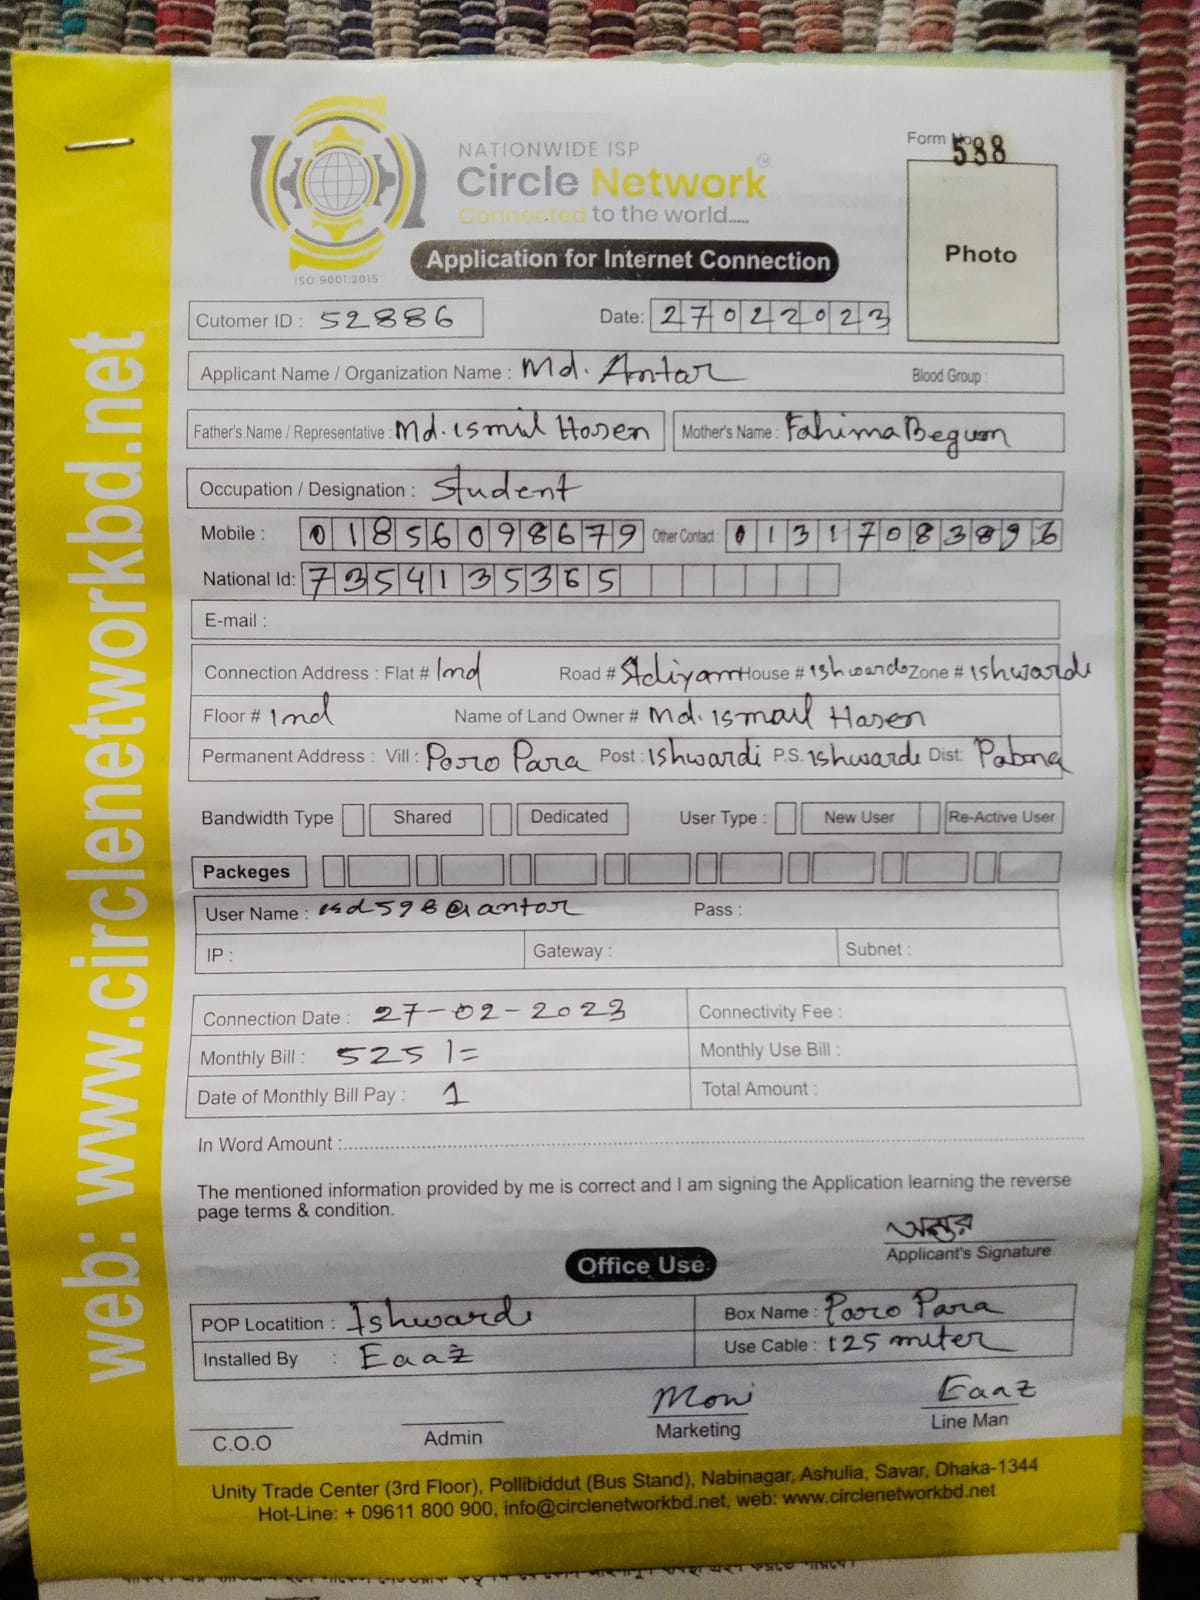 web: www.circlenetworkbd.net
NATIONWIDE ISP
Circle Network TM
Connected to the world.....
ISO 9001:2015
Application for Internet Connection
Form No. 598
Photo
Cutomer ID : 52886 Date: 27022023
Applicant Name / Organization Name : Md. Antar Blood Group :
Father's Name / Representative : Md. ismil Hasen Mother's Name : Fahima Begum
Occupation / Designation : Student
Mobile : 01856098679 Other Contact : 01317083896
National Id: 7354135365
E-mail :
Connection Address : Flat # Ind Road # House # Ishwardo Zone # Ishwardi
Floor # Ind Name of Land Owner # Md. Ismail Hasen
Permanent Address : Vill : Poro Para Post : Ishwardi P.S. Ishwardi Dist: Pabna
Bandwidth Type Shared Dedicated User Type : New User Re-Active User
Packeges
User Name : isd598@antor Pass :
IP : Gateway : Subnet :
Connection Date : 27-02-2023 Connectivity Fee :
Monthly Bill : 525 /= Monthly Use Bill :
Date of Monthly Bill Pay : 1 Total Amount :
In Word Amount :
The mentioned information provided by me is correct and I am signing the Application learning the reverse
page terms & condition.
অন্তর
Applicant's Signature
Office Use
POP Locatition : Ishwardi Box Name : Poro Para
Installed By : Eaaz Use Cable : 125 miter
Moni Eaaz
C.O.O Admin Marketing Line Man
Unity Trade Center (3rd Floor), Pollibiddut (Bus Stand), Nabinagar, Ashulia, Savar, Dhaka-1344
Hot-Line: + 09611 800 900, info@circlenetworkbd.net, web: www.circlenetworkbd.net